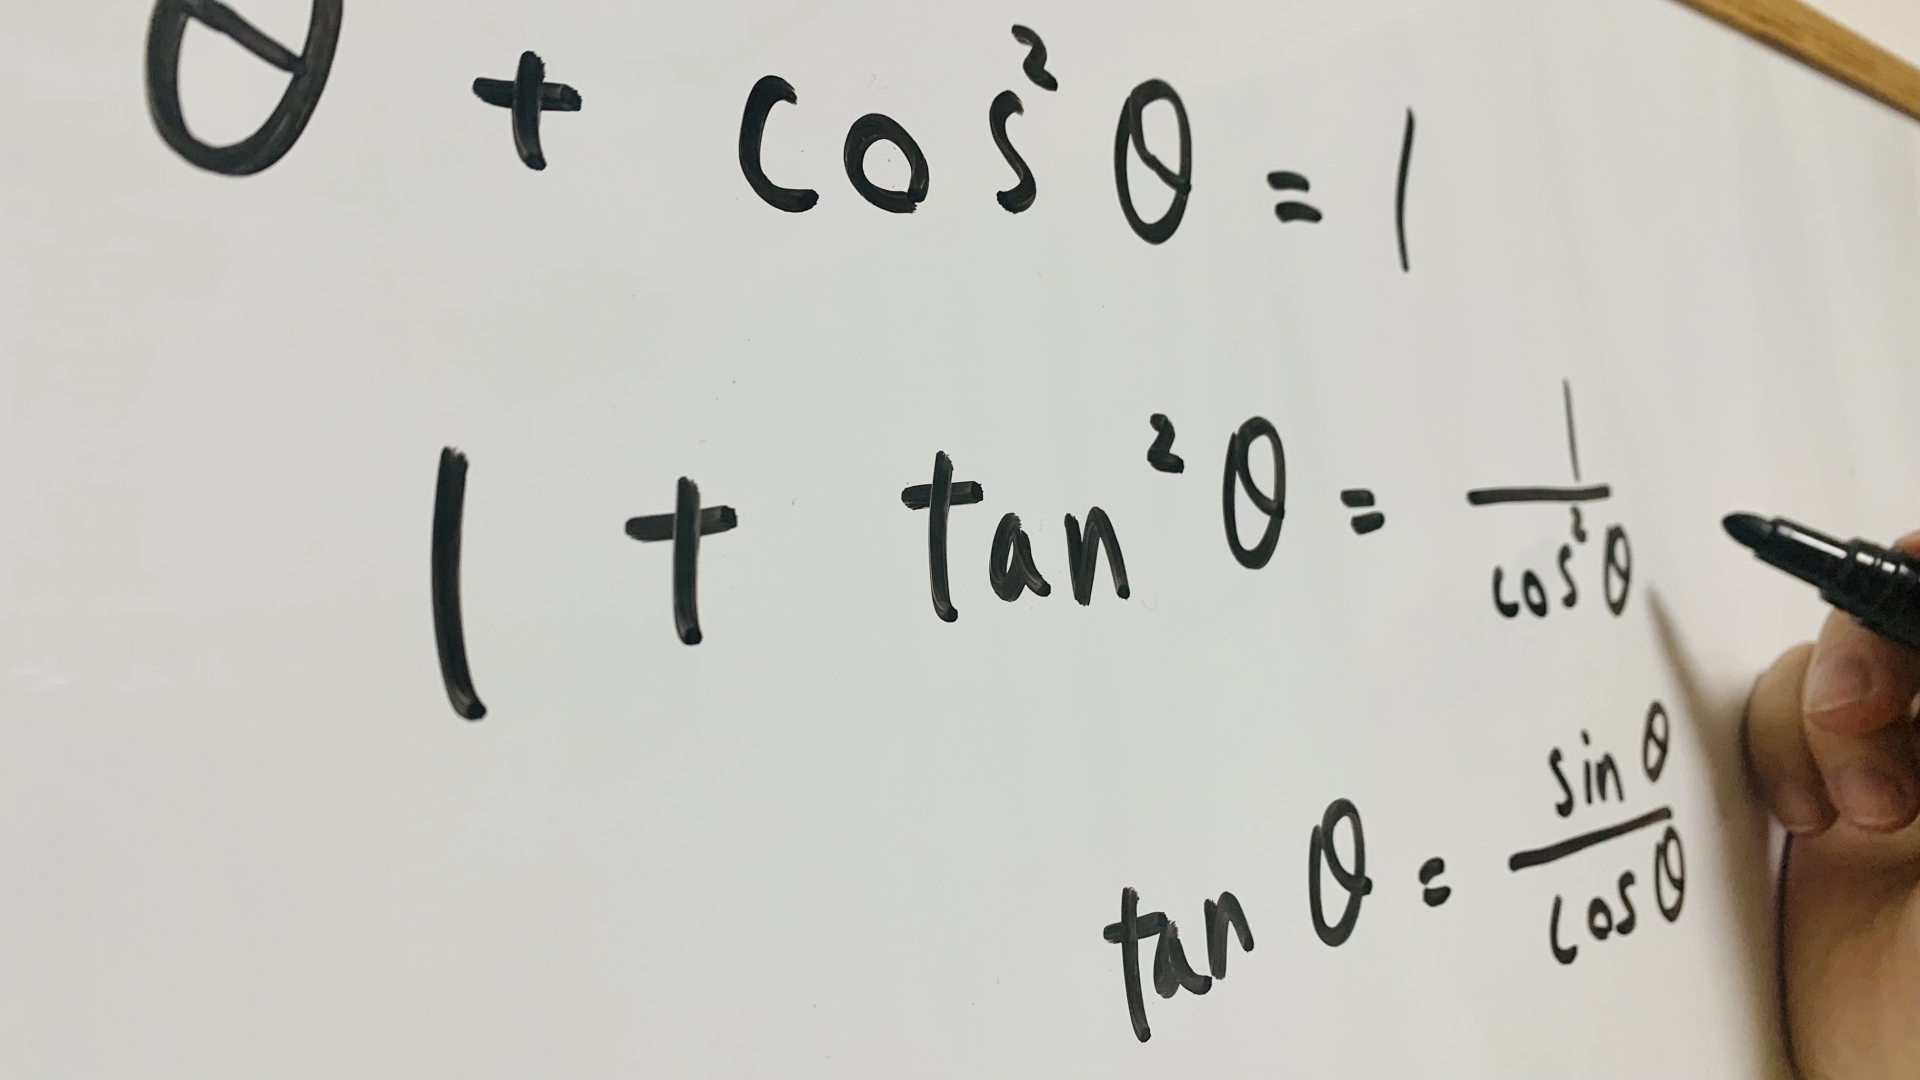 θ + cos²θ = 1
1 + tan²θ = 1/cos²θ
tan θ = sin θ/cos θ